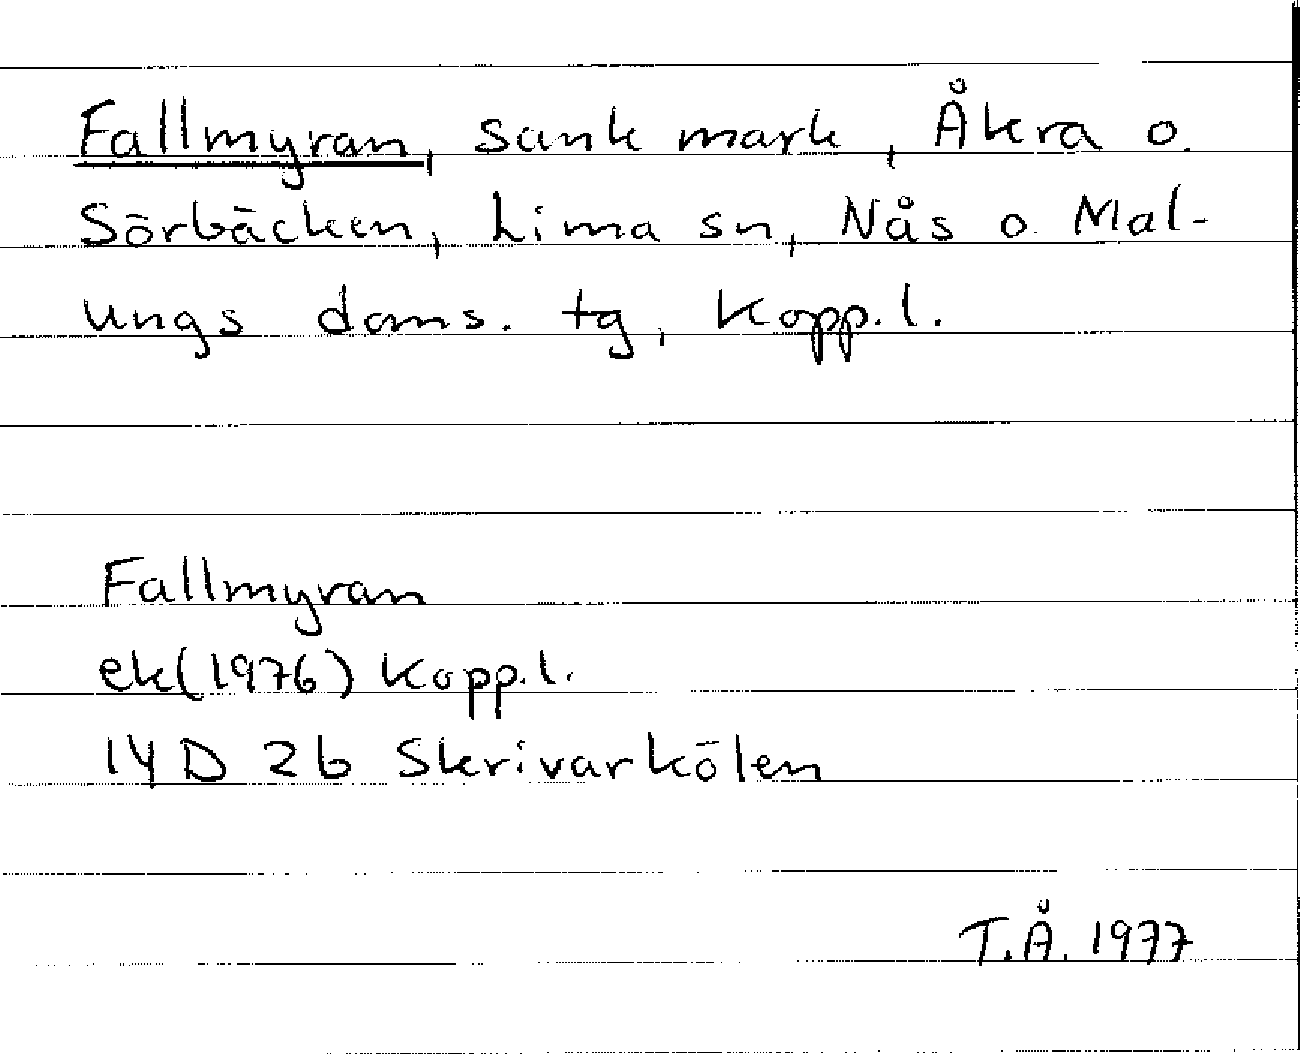 Fallmyran, sank mark, Åkra o.
Sörbäcken, Lima sn, Nås o. Mal-
ungs doms. tg, Kopp.l.
Fallmyran
ek(1976) Kopp.l.
14D 2b Skrivarkölen
T.Å. 1977